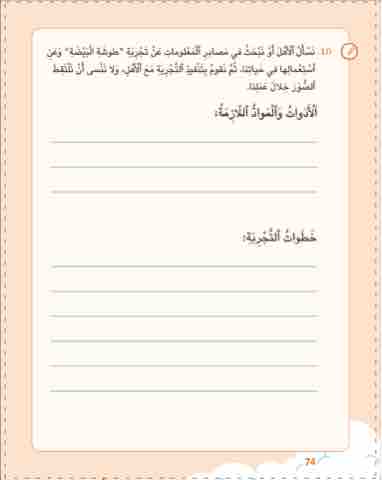 10. نَسْأَلُ ٱلْأَهْلَ أَوْ نَبْحَثُ في مَصادِرِ ٱلْمَعْلوماتِ عَنْ تَجْرِبَةِ "طوشَةِ الْبَيْضَةِ" وَعَنِ
ٱسْتِعْمالِها في حَياتِنا، ثُمَّ نَقومُ بِتَنْفيذِ ٱلتَّجْرِبَةِ مَعَ ٱلْأَهْلِ، وَلا نَنْسى أَنْ نَلْتَقِطَ
ٱلصُّوَرَ خِلالَ عَمَلِنا.
ٱلْأَدَواتُ وَٱلْمَوادُّ ٱللّازِمَةُ:
خُطُواتُ ٱلتَّجْرِبَةِ:
74